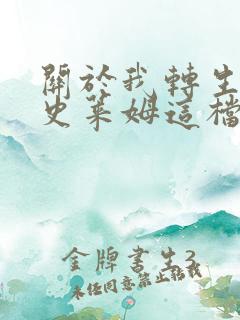 關於我轉生
史萊姆這檔
金牌書生3
未经同意禁止转载